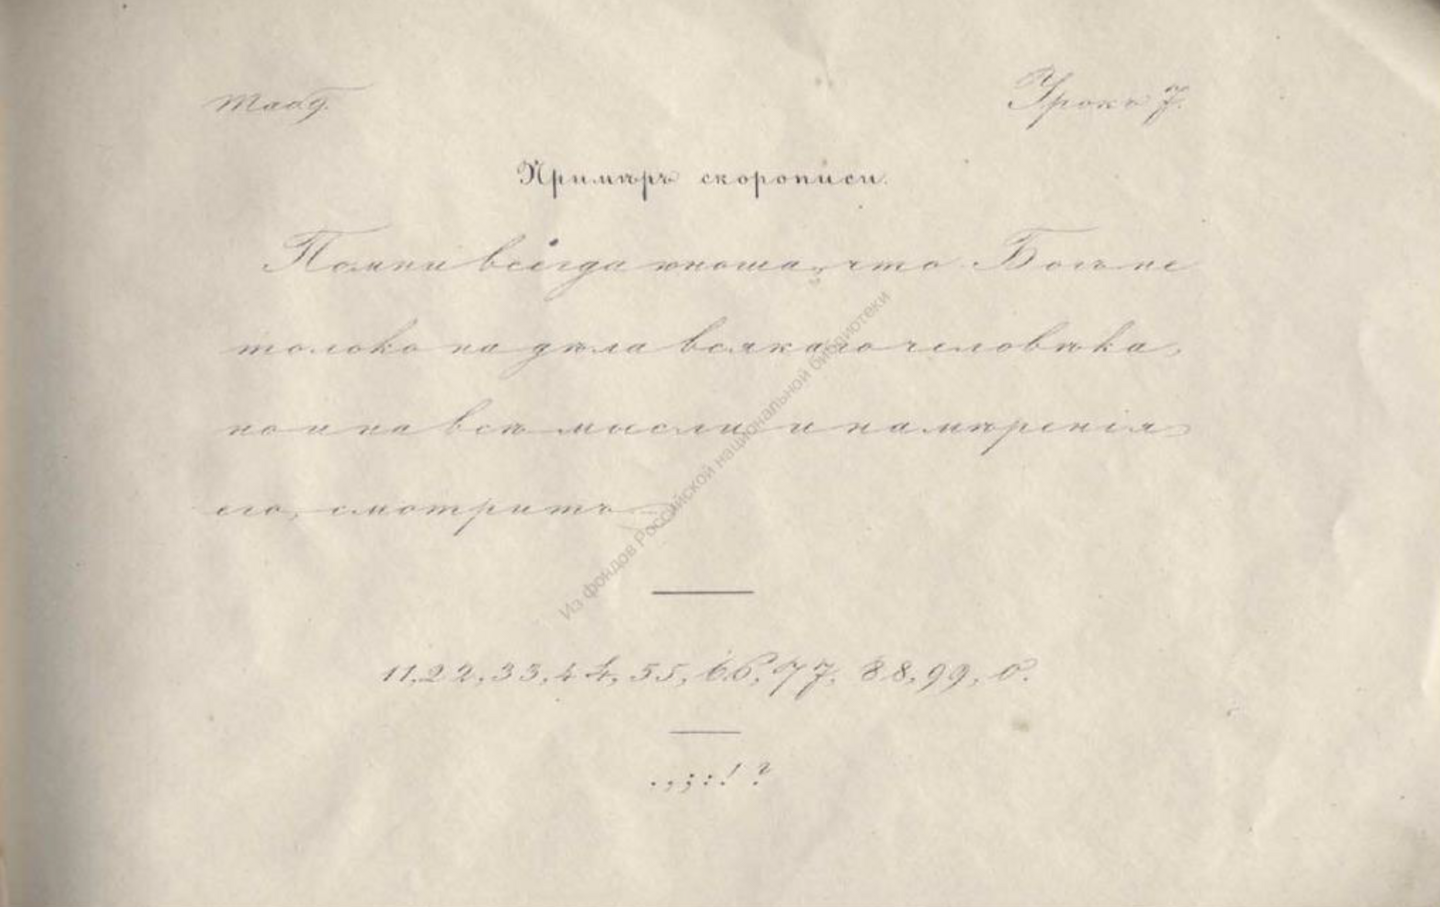 Таб 9. Урокъ 7.
Примѣръ скорописи.
Помни всегда юноша, что Богъ не
только на дѣла всякаго человѣка,
но и на всѣ мысли и намѣренія
его, смотритъ
11, 22, 33, 44, 55, 66, 77, 88, 99, 0.
. , ; : ! ?
Из фондов Российской национальной библиотеки